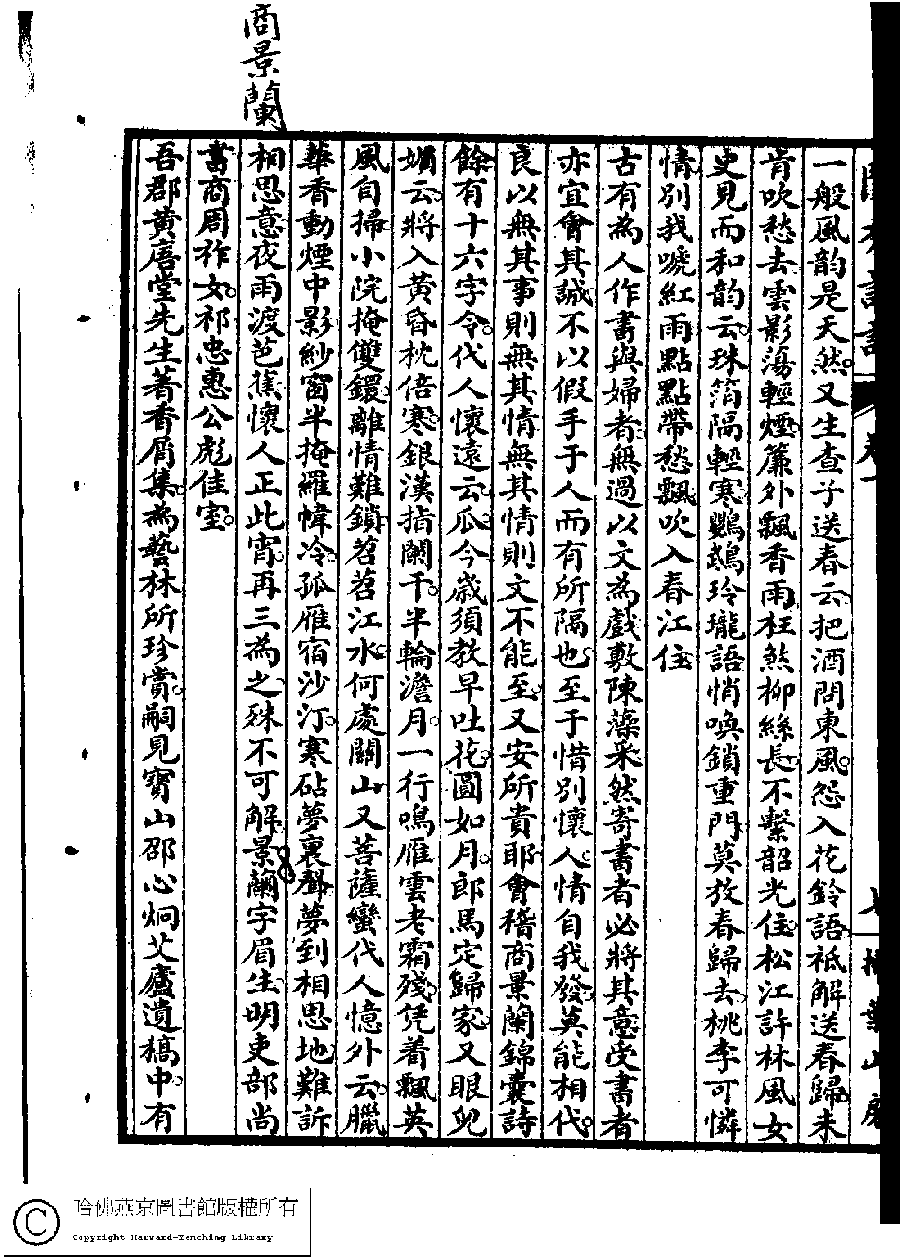 一般風韵是天然又生查子送春云把酒問東風怨入花鈴語祗解送春歸未
肯吹愁去雲影蕩輕煙簾外飄香雨枉煞柳絲長不繫韶光住松江許林風女
史見而和韵云珠箔隔輕寒鸚鵡玲瓏語悄喚鎖重門莫放春歸去桃李可憐
情別我唬紅雨點點帶愁飄吹入春江住
古有為人作書與婦者無過以文為戲敷陳藻采然寄書者必將其意受書者
亦宜會其誠不以假手于人而有所隔也至于惜別懷人情自我發莫能相代
良以無其事則無其情無其情則文不能至又安所貴耶會稽商景蘭錦囊詩
餘有十六字令代人懷遠云瓜今歲須教早吐花圓如月郎馬定歸家又眼兒
媚云將入黃昏枕倍寒銀漢指闌干半輪澹月一行鳴雁雲老霜殘凭着飄英
風自掃小院掩雙鐶離情難鎖苕苕江水何處關山又菩薩蠻代人憶外云臘
華香動煙中影紗窗半掩羅幃冷孤雁宿沙汀寒砧夢裏聲夢到相思地難訴
相思意夜雨渡芭蕉懷人正此宵再三為之殊不可解景蘭字眉生明吏部尚
書商周祚女祁忠惠公彪佳室
吾郡黃唐堂先生著香屑集為藝林所珍賞嗣見寶山邵心炯艾廬遺稿中有
商景蘭
哈佛燕京圖書館版權所有
Copyright Harvard-Yenching Library